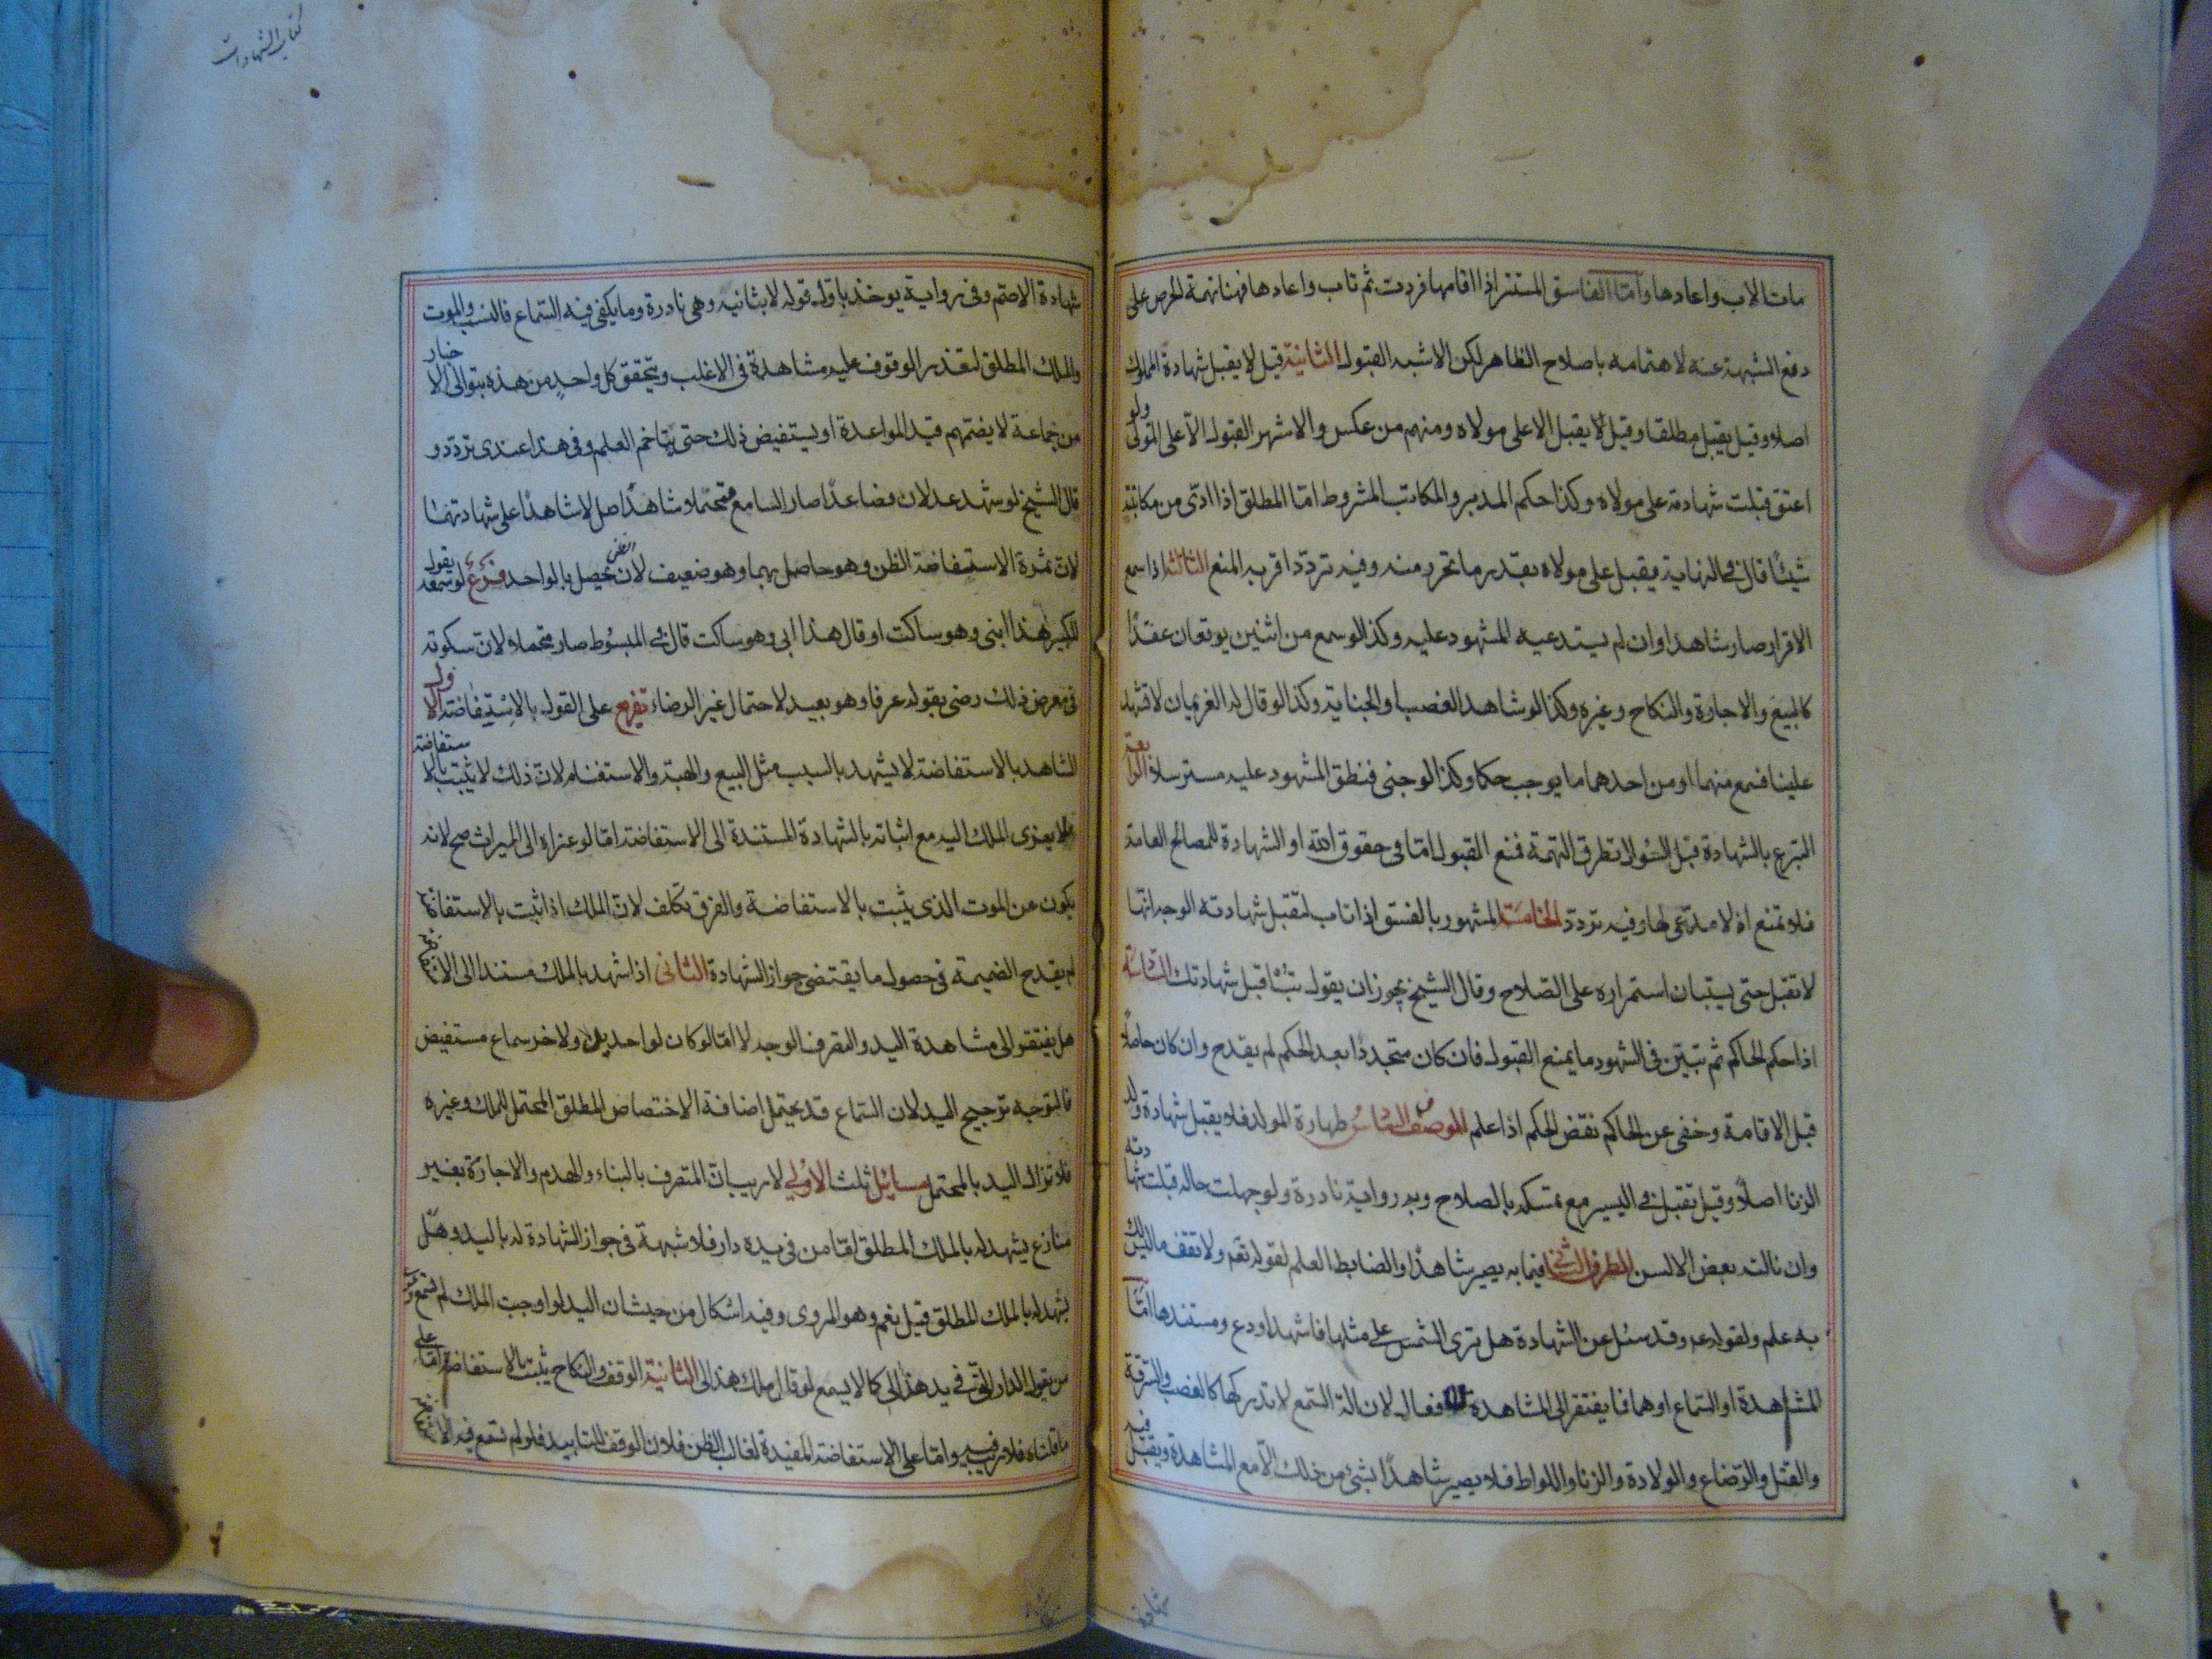 مات الاب واعادها واما الفاسق المستتر اذا اقامها فردت ثم تاب واعادها فهنا تهمة الحرص على
دفع الشبهة عنه لاهتمامه باصلاح الظاهر لكن الاشبه القبول الثانية قيل لا يقبل شهادة المملوك
اصلا وقيل يقبل مطلقا وقيل لا يقبل الا على مولاه ومنهم من عكس والاشهر القبول الا على المولى ولو
اعتق قبلت شهادته على مولاه وكذا حكم المدبر والمكاتب المشروط اما المطلق اذا ادى من مكاتبته
شيئا قال في النهاية يقبل على مولاه بقدر ما تحرر منه وفيه تردد اقربه المنع الثالثة اذا سمع
الاقرار صار شاهدا وان لم يستدعيه المشهود عليه وكذا لو سمع من اثنين يوقعان عقدا
كالبيع والاجارة والنكاح وغيره وكذا لو شاهد الغصب او الجناية وكذا لو قال له الغريمان لا تشهد
علينا فسمع منهما او من احدهما ما يوجب حكما وكذا لو جنى فنطق المشهود عليه مسترسلا الرابعة
المتبرع بالشهادة قبل السؤال تطرق التهمة فمنع القبول اما في حقوق الله او الشهادة للمصالح العامة
فلا تمنع اذ لا مدعى لها وفيه تردد الخامسة المشهور بالفسق اذا تاب لتقبل شهادته الوجه انها
لا تقبل حتى يستبان استمراره على الصلاح وقال الشيخ يجوز ان يقول تب اقبل شهادتك السادسة
اذا حكم الحاكم ثم تبين في الشهود ما يمنع القبول فان كان متجددا بعد الحكم لم يقدح وان كان حاصلا
قبل الاقامة وخفي عن الحاكم نقض الحكم اذا علم الوصف السادس طهارة المولد فلا يقبل شهادة ولد
الزنا اصلا وقيل تقبل في اليسير مع تمسكه بالصلاح وبه رواية نادرة ولو جهلت حاله قبلت شهادته
وان نالته بعض الالسن الطرف الثاني فيما به يصير شاهدا والضابط العلم لقوله تع ولا تقف ما ليس لك
به علم ولقوله ع وقد سئل عن الشهادة هل ترى الشمس على مثلها فاشهد او دع ومستندها اما
المشاهدة او السماع او هما فما يفتقر الى المشاهدة فالافعال لان الة السمع لا تدركها كالغصب والسرقة
والقتل والرضاع والولادة والزنا واللواط فلا يصير شاهدا بشئ من ذلك الا مع المشاهدة ويقبل فيه
شهادة
كتاب الشهادات
شهادة الاصم وفي رواية يوخذ باول قوله لا بثانيه وهي نادرة وما يكفي فيه السماع فالنسب والموت
والملك المطلق لتعذر الوقوف عليه مشاهدة في الاغلب ويتحقق كل واحد من هذه بتوالي الاخبار
من جماعة لا يضمهم قيد المواعدة او يستفيض ذلك حتى يتاخم العلم وفي هذا عندي تردد و
قال الشيخ لو شهد عدلان فصاعدا صار السامع متحملا وشاهد اصل لا شاهدا على شهادتهما
لان ثمرة الاستفاضة الظن وهو حاصل بهما وهو ضعيف لان الظن يحصل بالواحد فرع لو سمعه يقول
للكبير هذا ابني وهو ساكت او قال هذا ابي وهو ساكت قال في المبسوط صار متحملا لان سكوته
في معرض ذلك رضى بقوله عرفا وهو بعيد لاحتمال غير الرضاء تفريع على القول بالاستفاضة الاول
الشاهد بالاستفاضة لا يشهد بالسبب مثل البيع والهبة والاستغنام لان ذلك لا يثبت بالاستفاضة
فلا يعزى الملك اليه مع اثباته بالشهادة المستندة الى الاستفاضة اما لو عزاه الى الميراث صح لانه
يكون عن الموت الذي يثبت بالاستفاضة والفرق تكلف لان الملك اذا ثبت بالاستفاضة
لم يقدح الضميمة في حصول ما يقتضي جواز الشهادة الثاني اذا شهد بالملك مستندا الى الاستفاضة
هل يفتقر الى مشاهدة اليد والتصرف الوجه لا اما لو كان لواحد يد ولاخر سماع مستفيض
فالوجه ترجيح اليد لان السماع قد يحتمل اضافة الاختصاص المطلق المحتمل للملك وغيره
فلا تزال اليد بالمحتمل مسائل ثلث الاولى لا ريب ان المتصرف بالبناء والهدم والاجارة بغير
منازع يشهد له بالملك المطلق اما من في يده دار فلا شبهة في جواز الشهادة له باليد وهل
يشهد له بالملك المطلق قيل نعم وهو المروي وفيه اشكال من حيث ان اليد لو اوجبت الملك لم تسمع دعوى
من يقول الدار التي في يد هذا لي كما لا يسمع لو قال ملك هذا لي الثانية الوقف والنكاح يثبت بالاستفاضة اما على
ما قلناه فلا ريب فيه واما على الاستفاضة المفيدة لغالب الظن فلان الوقف للتابيد فلو لم تسمع فيه الاستفاضة